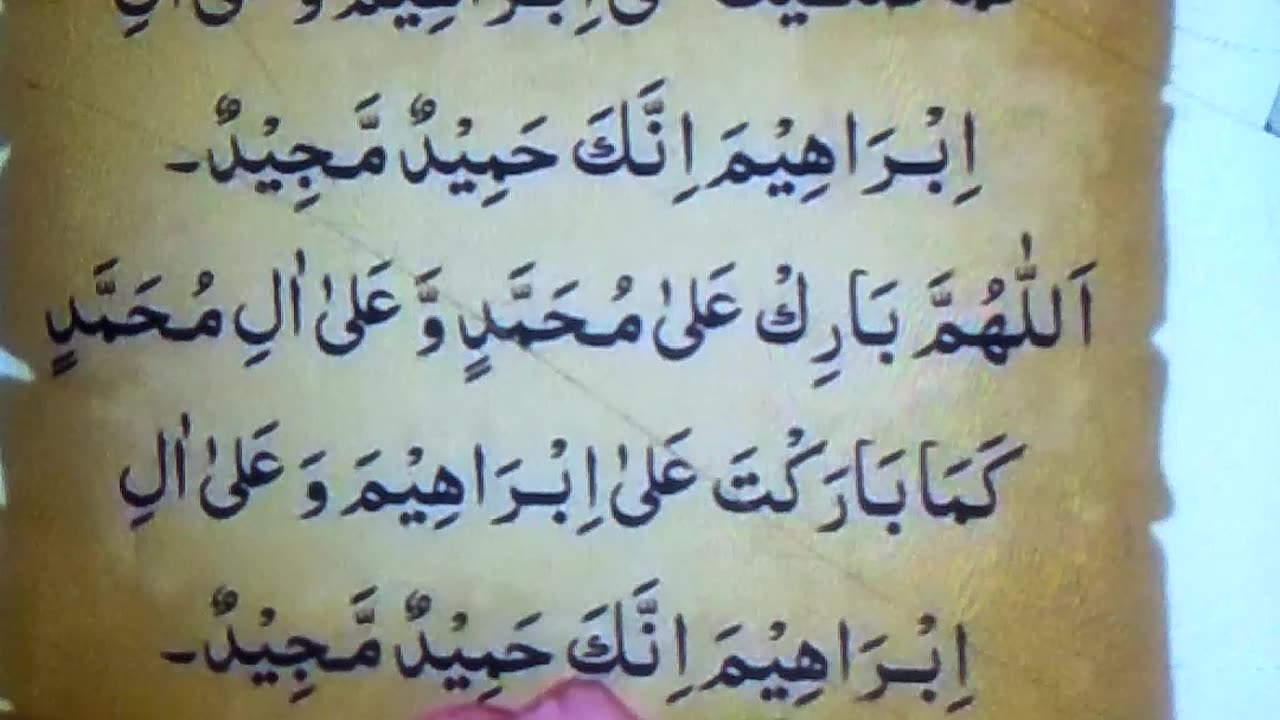 عَلٰى اِبْرَاهِيْمَ وَ عَلٰى اٰلِ
اِبْرَاهِيْمَ اِنَّكَ حَمِيْدٌ مَّجِيْدٌ۔
اَللّٰهُمَّ بَارِكْ عَلىٰ مُحَمَّدٍ وَّ عَلىٰ اٰلِ مُحَمَّدٍ
كَمَا بَارَكْتَ عَلىٰ اِبْرَاهِيْمَ وَ عَلىٰ اٰلِ
اِبْرَاهِيْمَ اِنَّكَ حَمِيْدٌ مَّجِيْدٌ۔